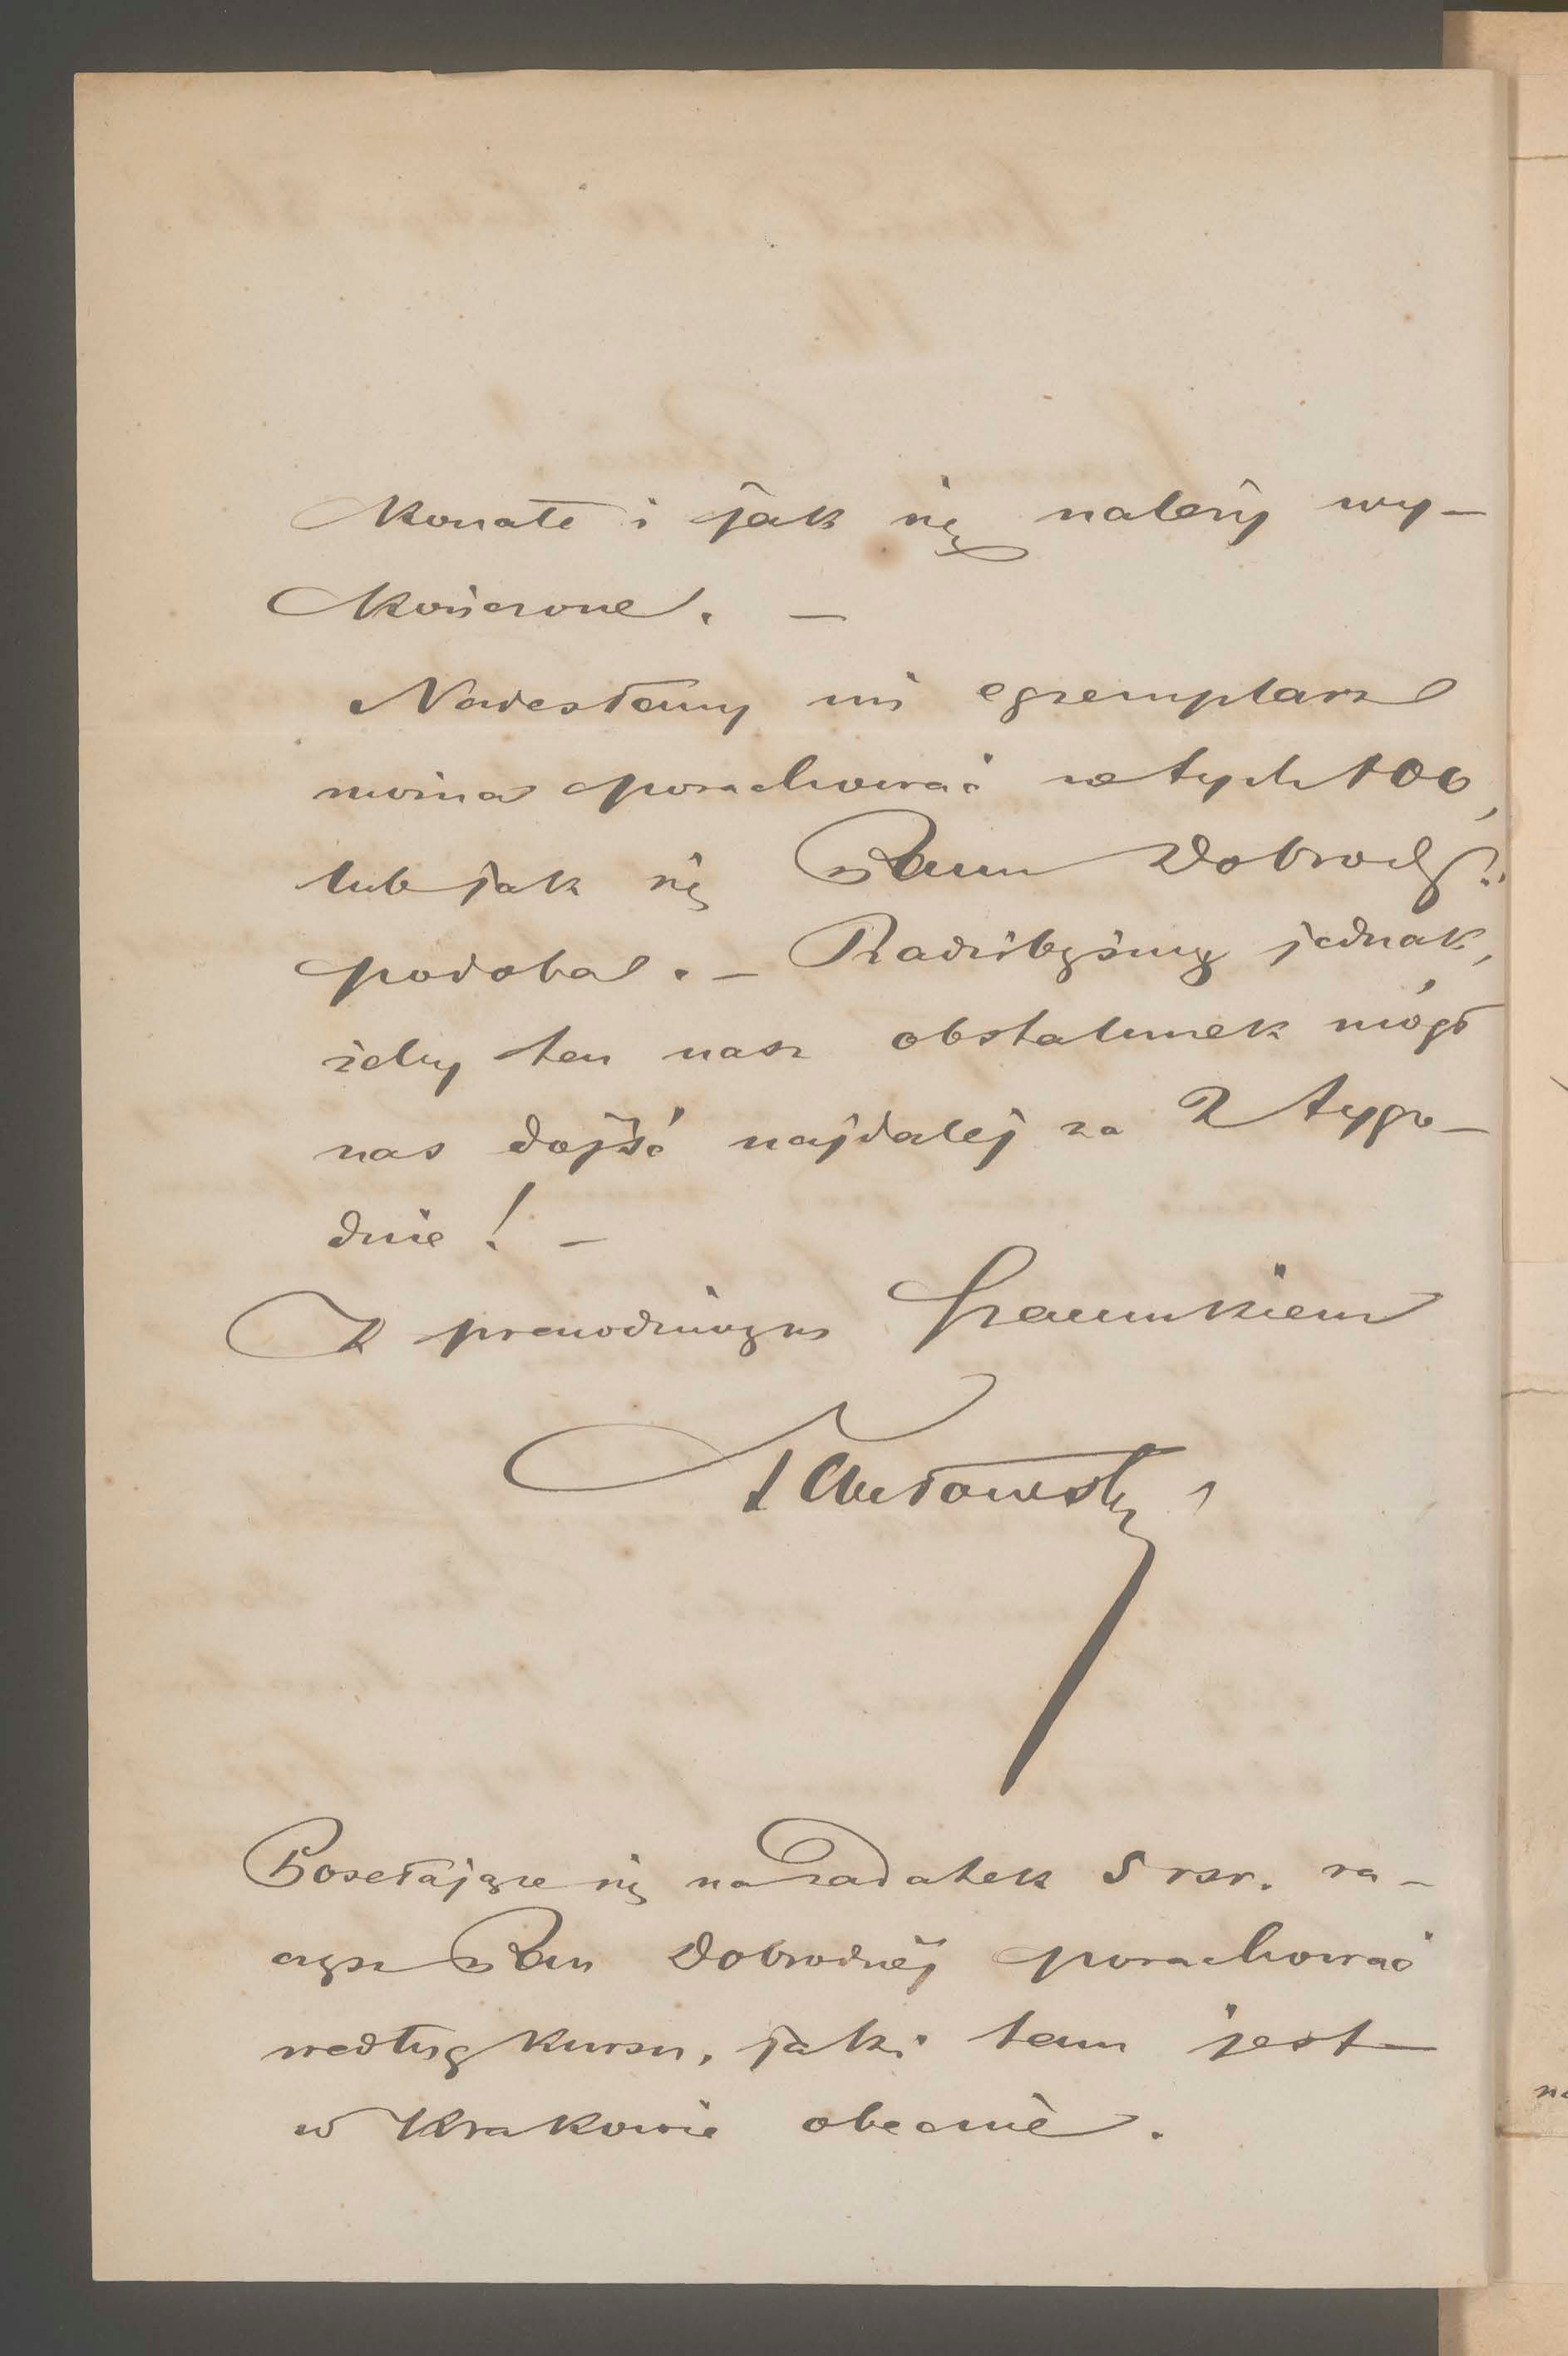 konałe i jak się należy wy-
kończone. —
Nadesłany mi egzemplarz
można porachować w tych 100,
lub jak się Panu Dobrodz.:
podoba. — Radzibyśmy jednak,
żeby ten nasz obstalunek mógł
nas dojść najdalej za 2 tygo-
dnie! —
Z prawdziwym szacunkiem
Posełające się na zadatek 5 rsr. ra-
czysz Pan Dobrodziéj porachować
według kursu, jaki tam jest
w Krakowie obecnie.